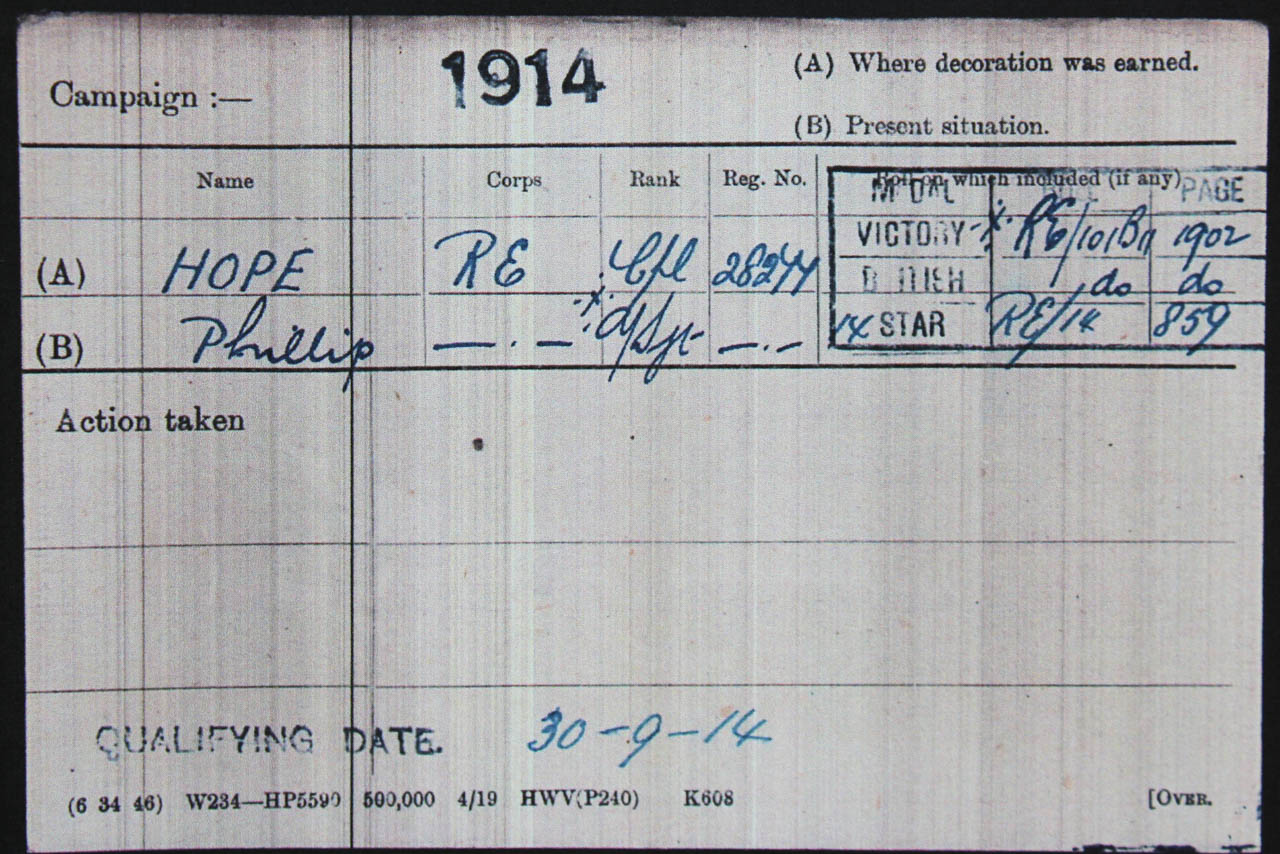 Campaign :— 1914 (A) Where decoration was earned.
(B) Present situation.
Name Corps Rank Reg. No. Roll on which included (if any)
MEDAL PAGE
(A) HOPE RE Cpl 28244 VICTORY RE/101B 1902
BRITISH do do
(B) Phillip — . — A/Sjt — . — 14 STAR RE/14 859
Action taken
QUALIFYING DATE. 30-9-14
(6 34 46) W234—HP5590 500,000 4/19 HWV(P240) K608 [OVER.